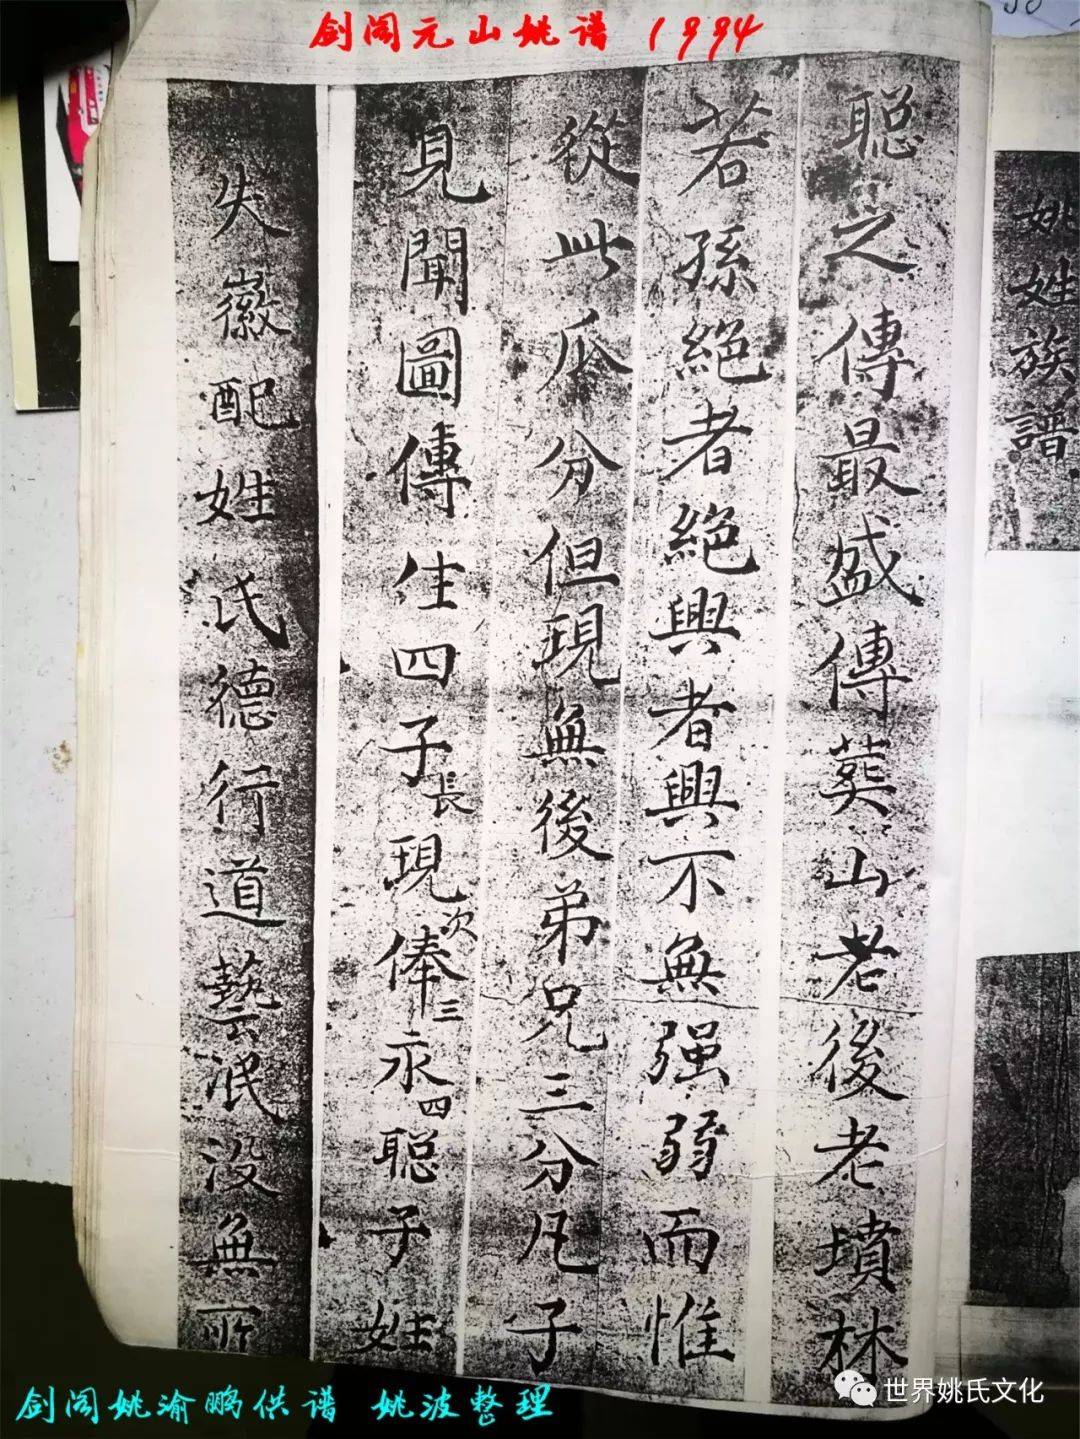 剑阁元山姚谱 1994
失徽配姓氏德行道藝泯沒無所
見聞圖傳生四子長現次俸三永四聰子姓
從此瓜分但現無後弟兄三分凡子
若孫絕者絕興者興不無强弱而惟
聰之傳最盛傳葬山老後老墳林
姚姓族譜
剑阁姚渝鹏供谱 姚波整理
世界姚氏文化